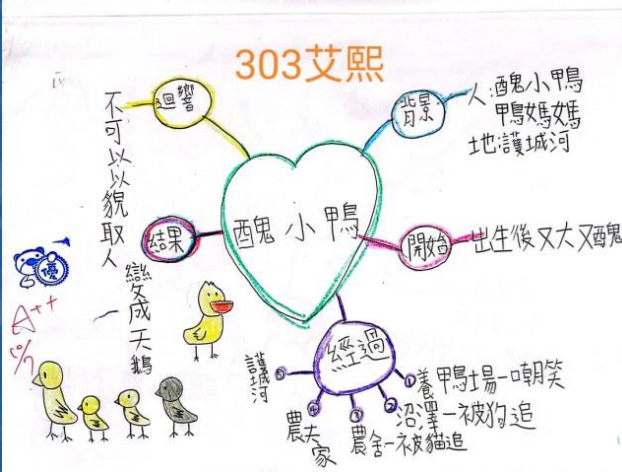 303艾熙
迴響
不可以以貌取人
背景
人:醜小鴨
鴨媽媽
地護城河
醜小鴨
結果
變成天鵝
開始
出生後又大又醜
經過
①養鴨場一嘲笑
②沼澤一被狗追
③農舍一被貓追
④農夫家
⑤護城河
優
A++